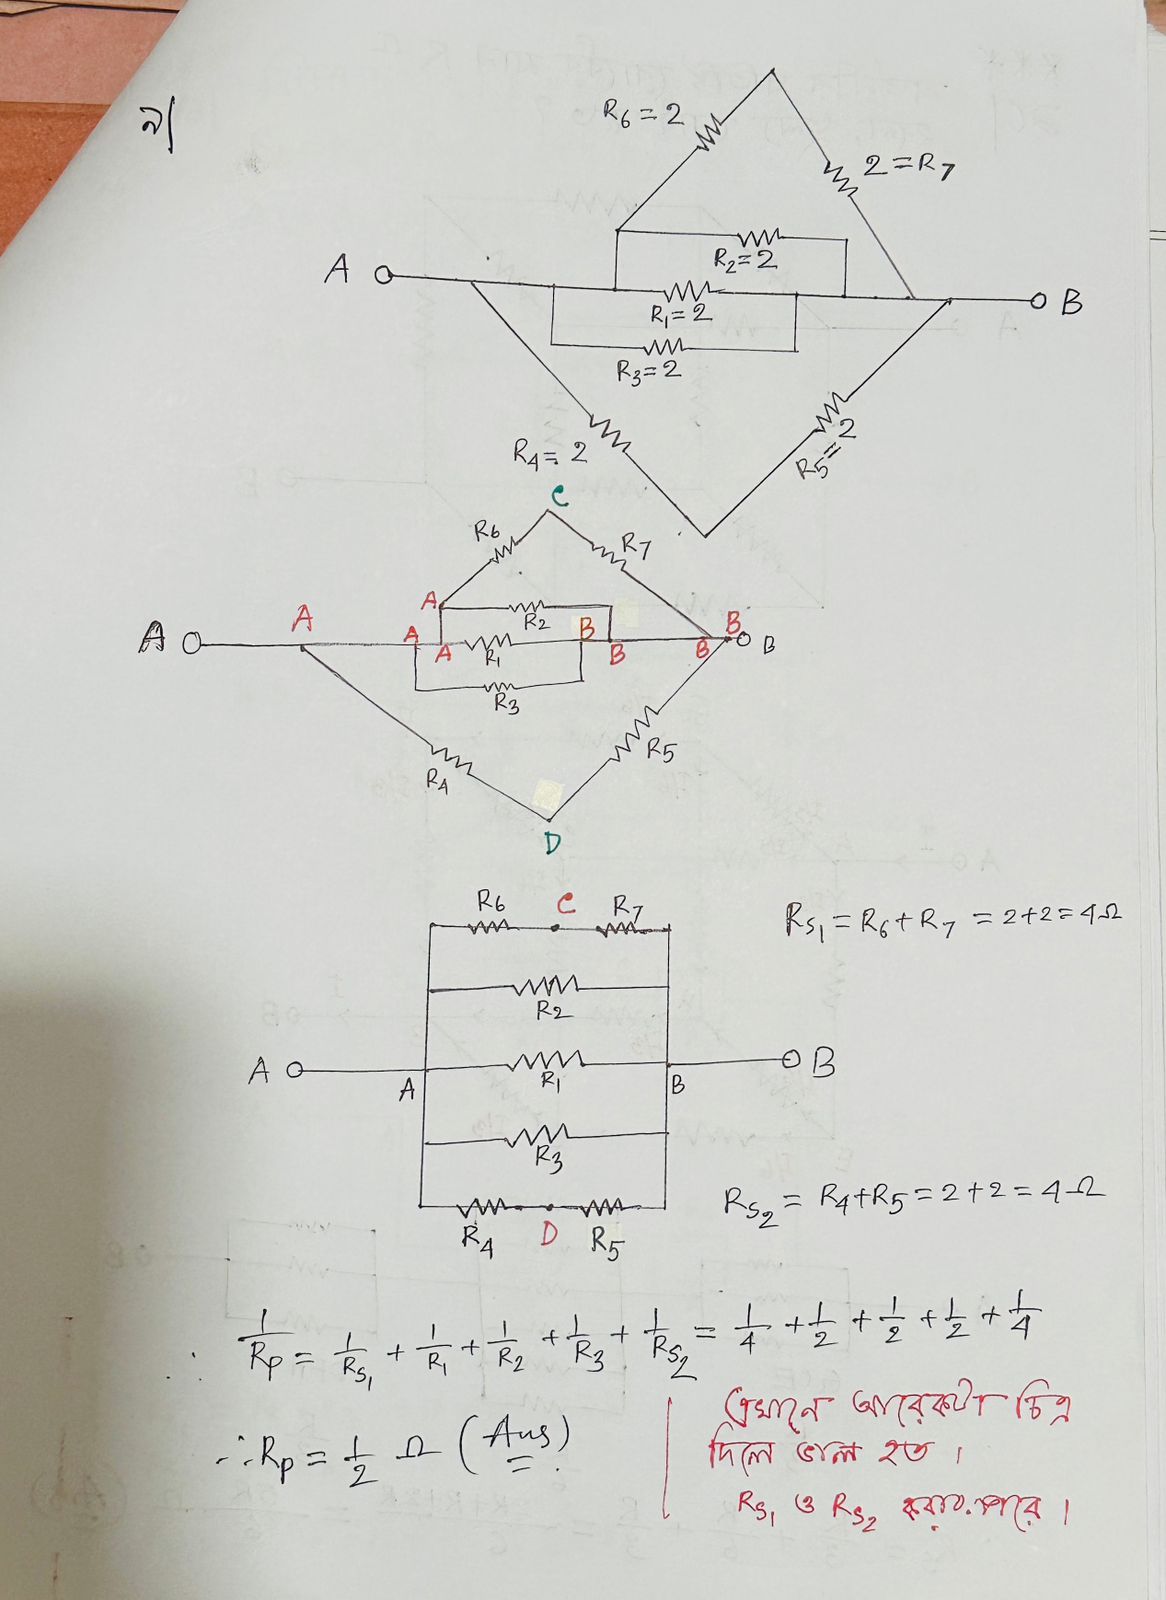 ২/
R6 = 2
2 = R7
R2 = 2
A
B
R1 = 2
R3 = 2
R4 = 2
R5 = 2
C
R6
R7
A
R2
A
A
A
A
R1
B
B
B
B
B
R3
R4
R5
D
R6
C
R7
RS1 = R6 + R7 = 2+2 = 4Ω
R2
A
A
R1
B
B
R3
RS2 = R4+R5 = 2+2 = 4Ω
R4
D
R5
∴ 1/RP = 1/RS1 + 1/R1 + 1/R2 + 1/R3 + 1/RS2 = 1/4 + 1/2 + 1/2 + 1/2 + 1/4
∴ RP = 1/2 Ω (Ans)
এখানে আরেকটা চিত্র
দিলে ভাল হত ।
RS1 ও RS2 করার পরে ।